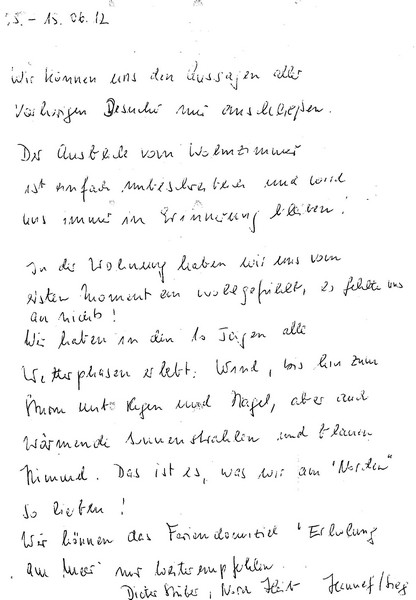 5.- 15.06.12
Wir können uns den Aussagen aller
vorherigen Besuche nur anschließen.
Der Ausblick vom Wohnzimmer
ist einfach unbeschreiblich und wird
uns immer in Erinnerung bleiben!
In der Wohnung haben wir uns vom
ersten Moment an wohlgefühlt, es fehlte uns
an nichts!
Wir haben in den 10 Tagen alle
Wetterphasen erlebt: Wind, bis hin zum
Sturm mit Regen und Hagel, aber auch
wärmende Sonnenstrahlen und blauen
Himmel. Das ist es, was wir am "Norden"
so lieben!
Wir können das Feriendomizil "Erholung
am Meer" nur weiterempfehlen.
Dieter Hennef/Sieg